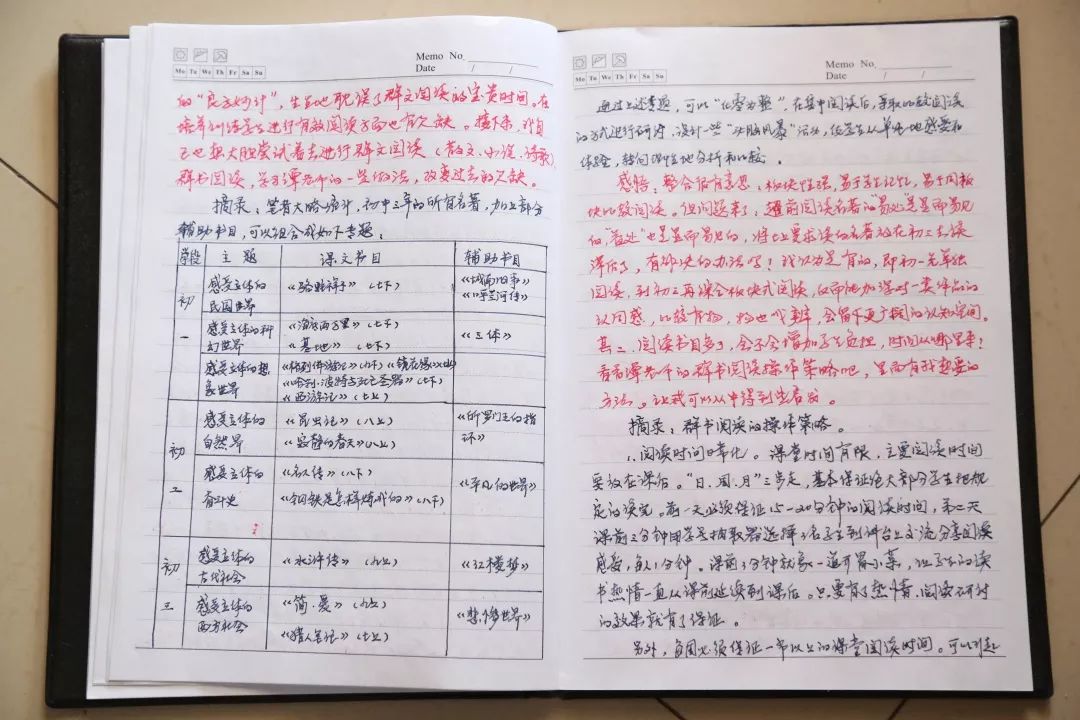 Memo No.
Mo Tu We Th Fr Sa Su
Date / /
的“良方妙计”，生生地耽误了群文阅读的宝贵时间。在
培养训练学生进行有效阅读方面也有欠缺。接下来，我自
己也想大胆尝试着去进行群文阅读（散文、小说、诗歌）
群书阅读，学习谭老师的一些做法，改变过去的欠缺。
摘录：笔者大略统计，初中三年的所有名著，加上部分
辅助书目，可以组合成如下专题：
学段 主题 课文书目 辅助书目
初一 感受立体的民国世界 《骆驼祥子》（七下） 《城南旧事》《呼兰河传》
感受立体的科幻世界 《海底两万里》（七下）《基地》（七下） 《三体》
感受立体的想象世界 《格列佛游记》（九下）《镜花缘》（七上）
《哈利·波特与死亡圣器》（七下）
《西游记》（七上）
初二 感受立体的自然界 《昆虫记》（八上）《寂静的春天》（八上） 《所罗门王的指环》
感受立体的奋斗史 《名人传》（八下）《钢铁是怎样炼成的》（八下） 《平凡的世界》
初三 感受立体的古代社会 《水浒传》（九上） 《红楼梦》
感受立体的西方社会 《简·爱》（九下）《猎人笔记》（七上） 《悲惨世界》
Memo No.
Mo Tu We Th Fr Sa Su
Date / /
通过上述专题，可以“化零为整”，在集中阅读后，采取比较阅读
的方式进行研讨，设计一些“头脑风暴”活动，使学生从单纯地感受和
体验，转向理性地分析和比较。
感悟：整合很有意思：板块性强，易于学生记忆，易于同板
块比较阅读。但问题来了：超前阅读名著的“易处”是显而易见
的“难处”也是显而易见的，将七上要求读的名著放在初三去读
滞后了，有解决的办法吗？我认为是有的，即初一先单独
阅读，到初三再综合板块式阅读，反而他加深对一类作品的
认同感，比较有物，物也成群，会留下更广阔的认知空间。
其二、阅读书目多了，会不会增加学生负担，时间从哪里来？
看看谭老师的群书阅读操作策略吧，里面有我想要的
方法。让我可以从中得到些启发。
摘录：群书阅读的操作策略。
1.阅读时间日常化。课堂时间有限，主要阅读时间
要放在课后。“日、周、月”三步走，基本保证绝大部分学生把规
定的读完。前一天必须保证15—20分钟的阅读时间，第二天
课前三分钟用学号抽取器选择3名学生到讲台上交流分享阅读
感受，每人1分钟。课前3分钟就象一道开胃小菜，让学生的读
书热情一直从课前延续到课后。只要有了热情，阅读研讨
的效果就有了保证。
另外，每周必须保证一节以上的课堂阅读时间。可以